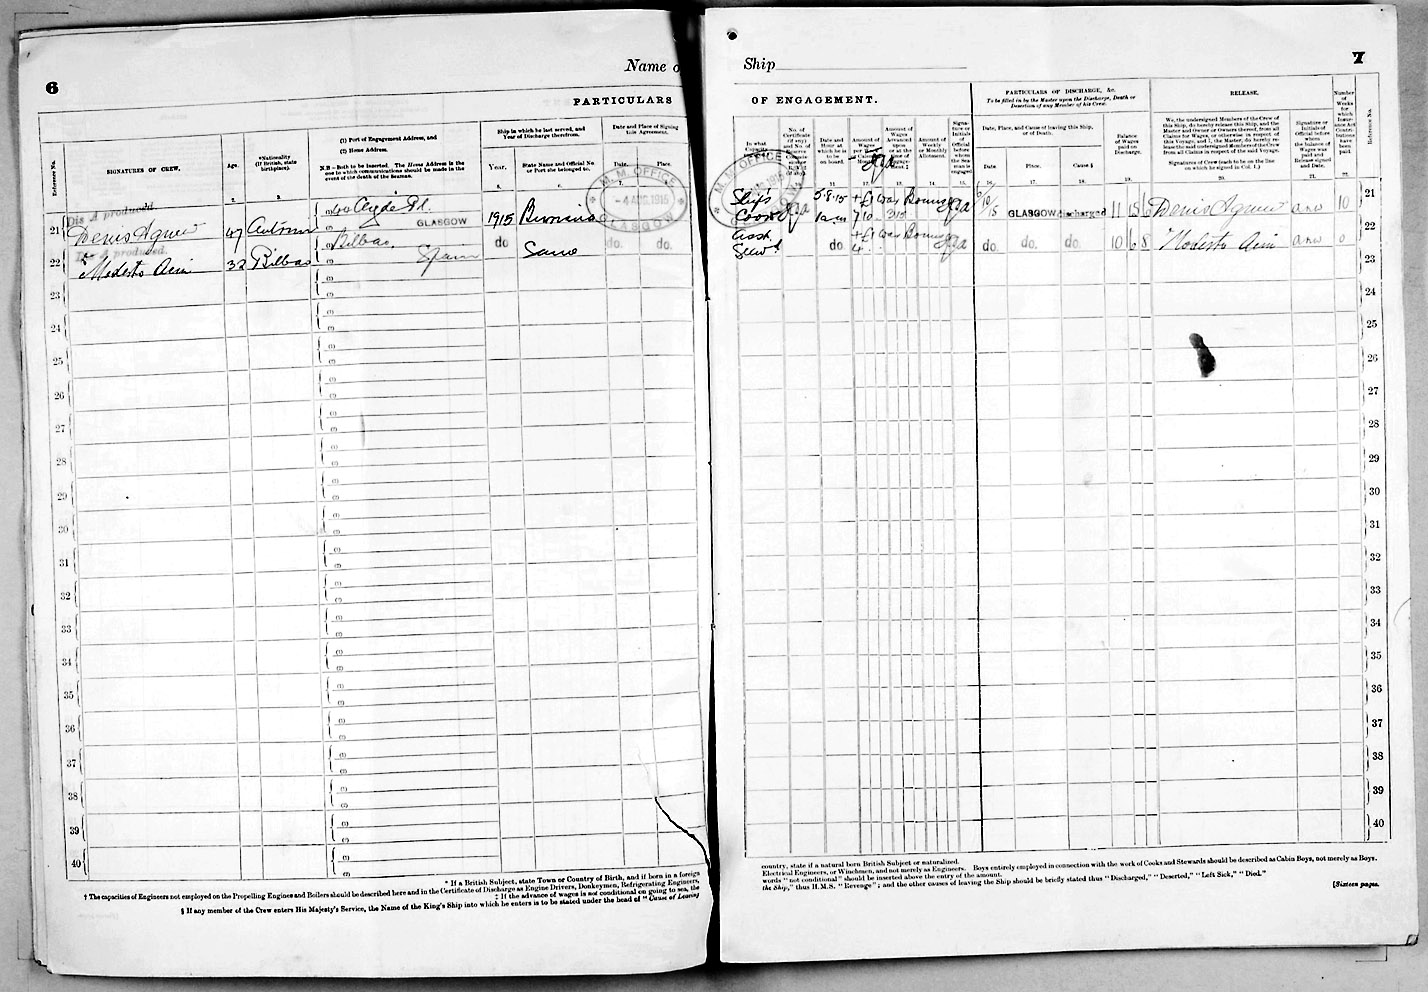 6
Name o
PARTICULARS
Reference No.
SIGNATURES OF CREW.
Age.
*Nationality
(If British, state
birthplace).
(1) Port of Engagement Address, and
(2) Home Address.
N.B.—Both to be inserted. The Home Address is the
one to which communications should be made in the
event of the death of the Seaman.
Ship in which he last served, and
Year of Discharge therefrom.
Year.
State Name and Official No.
or Port she belonged to.
Date and Place of Signing
this Agreement.
Date.
Place.
M. M. OFFICE
- 4 AUG. 1915
GLASGOW
Dis A produced.
21 Denis Agnew 47 Antrim (1) 200 Clyde Pl. GLASGOW 1915
Dis A produced.
22 Modesto 32 Bilbao (1) Bilbao. Spain do Same do. do.
23
24
25
26
27
28
29
30
31
32
33
34
35
36
37
38
39
40
* If a British Subject, state Town or Country of Birth, and if born in a foreign
† The capacities of Engineers not employed on the Propelling Engines and Boilers should be described here and in the Certificate of Discharge as Engine Drivers, Donkeymen, Refrigerating Engineers,
‡ If the advance of wages is not conditional on going to sea, the
§ If any member of the Crew enters His Majesty's Service, the Name of the King's Ship into which he enters is to be stated under the head of "Cause of Leaving
Ship
7
OF ENGAGEMENT.
In what
Capacity
Date and
Hour at which he is
to be
on board.
Amount of
Wages
Amount of
Wages
Advanced
upon
or at the
Amount of
Weekly
or Monthly
Allotment.
PARTICULARS OF DISCHARGE, &c.
To be filled in by the Master upon the Discharge, Death or
Desertion of any Member of his Crew.
Date, Place, and Cause of leaving this Ship,
or of Death.
Date
Place.
Cause §
Balance
of Wages
paid on
Discharge.
RELEASE.
We, the undersigned Members of the Crew
of this Ship, do hereby release this Ship, and the
Master and Owner or Owners thereof, from all
Claims for Wages, or otherwise in respect of
this Voyage; and I, the Master, do hereby re-
lease the said undersigned Members of the Crew
from all Claims in respect of the said Voyage.
Signatures of Crew (each to be on the line
on which he signed in Col. 1.)
Signature or
Initials of
Official before
whom
the balance of
Wages was
paid and
Release signed
and Date.
Number
of
Weeks
for
which
Insur-
ance Act
Contri-
butions
have
been
paid.
Reference No.
M. M. OFFICE
Ship's Cook 5-8-15 7 10 War Bonus GLASGOW discharged 11 Denis Agnew 10 21
Asst Stewd do 4 War Bonus do. do. do. 10 6 8 Modesto 0 22
23
24
25
26
27
28
29
30
31
32
33
34
35
36
37
38
39
40
country, state if a natural born British Subject or naturalized.
Electrical Engineers, or Winchmen, and not merely as Engineers. Boys entirely employed in connection with the work of Cooks and Stewards should be described as Cabin Boys, not merely as Boys.
words "not conditional" should be inserted above the entry of the amount.
the Ship," thus H.M.S. "Revenge"; and the other causes of leaving the Ship should be briefly stated thus "Discharged," "Deserted," "Left Sick," "Died."
[Sixteen pages.